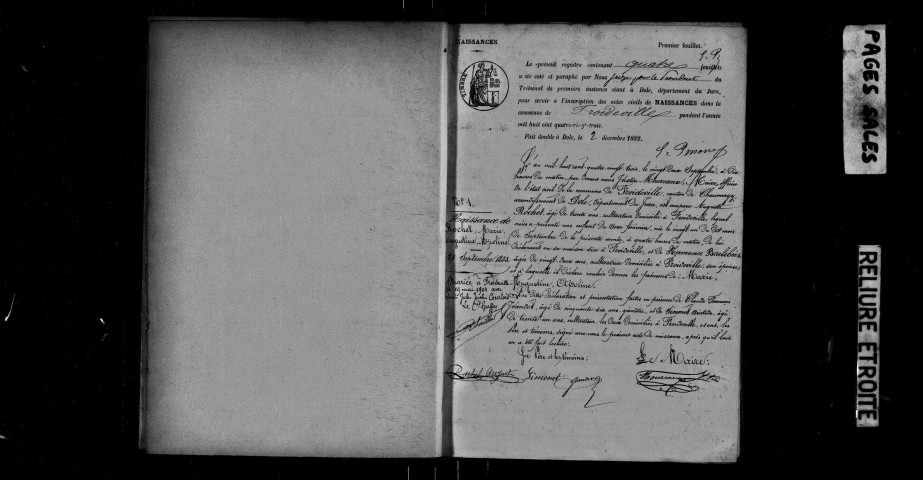 NAISSANCES
Premier feuillet.
Le présent registre contenant quatre feuillets
a été coté et paraphé par Nous juge pour le Président du
Tribunal de première instance séant à Dole, département du Jura,
pour servir à l'inscription des actes civils de NAISSANCES dans la
commune de Froideville pendant l'année
mil huit cent quatre-vingt-trois.
Fait double à Dole, le 2 décembre 1882.
TIMBRE
L'an mil huit cent quatre vingt trois, le vingt deux Septembre, à dix
heures du matin, par devant nous Justin Moureaux, Maire, officier
de l'état civil de la commune de Froideville, canton de Chaumergy,
arrondissement de Dole, Département du Jura, est comparu Auguste
Rochet, âgé de trente ans, cultivateur domicilié à Froideville, lequel
nous a présenté une enfant du sexe féminin, née le vingt un du dit mois
de Septembre de la présente année, à quatre heures du matin de lui
déclarant en sa maison sise à Froideville, et de Hermance
âgée de vingt deux ans, cultivatrice domiciliée à Froideville, son épouse,
et à laquelle il déclare vouloir donner les prénoms de: Marie,
Augustine, Adeline.
Les dites déclaration et présentation faites en présence de Claude François
Jeunet, âgé de cinquante six ans, et de Simonet Aristide, âgé
de trente un ans, cultivateur, les deux domiciliés à Froideville, et ont, les
père et témoins, signé avec nous le présent acte de naissance, après qu'il leur
en a été fait lecture.
Le Père et les témoins:
Le Maire:
Rochet August
Simonet
N° 1.
Naissance de
Rochet, Marie,
Augustine, Adeline
21 Septembre 1883.
Mariée à Froideville
mai avec
Le Greffier
PAGES SALES
RELIURE ETROITE